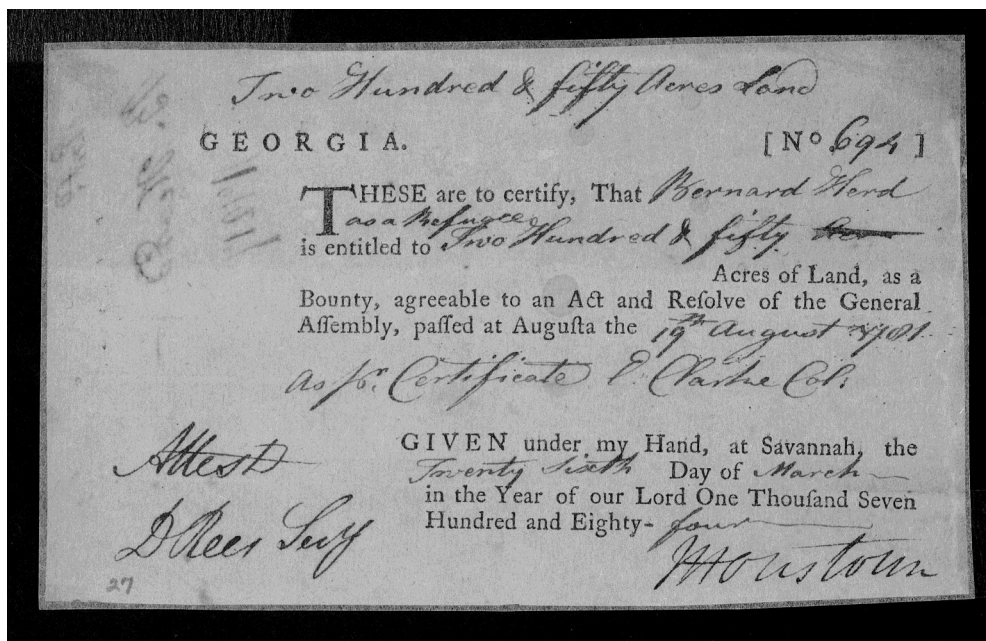 Two Hundred & fifty Acres Land
GEORGIA. [No 694]
THESE are to certify, That Bernard Herd
as a Refugee
is entitled to Two Hundred & fifty
Acres of Land, as a
Bounty, agreeable to an Act and Reſolve of the General
Aſſembly, paſſed at Auguſta the 19th August 1781
as pr. Certificate E. Clarke Col:
GIVEN under my Hand, at Savannah, the
Attest
Twenty Sixth Day of March
in the Year of our Lord One Thouſand Seven
Hundred and Eighty-four
D Rees Secy
JHoustoun
27